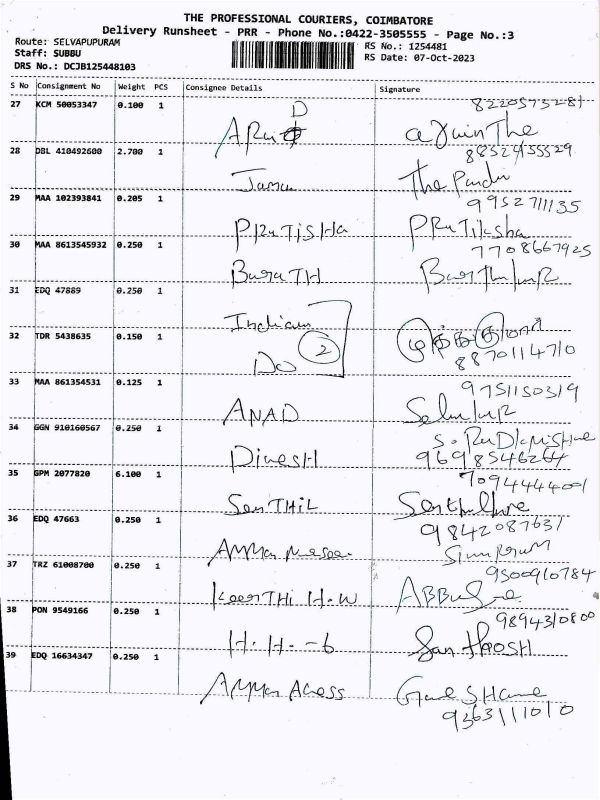 THE PROFESSIONAL COURIERS, COIMBATORE
Delivery Runsheet - PRR - Phone No.:0422-3505555 - Page No.:3
Route: SELVAPUPURAM
RS No.: 1254481
Staff: SUBBU
RS Date: 07-Oct-2023
DRS No.: DCJB125448103
S No Consignment No Weight PCS Consignee Details Signature
27 KCM 50053347 0.100 1
28 DBL 410492600 2.700 1
The Pandi
29 MAA 102393841 0.205 1 9952711135
PRUTISHA PRUTiksha
30 MAA 8613545932 0.250 1 7708667925
BaraTH
31 EDQ 47889 0.250 1
Indian
32 TDR 5438635 0.150 1 8870114710
Do 2
33 MAA 861354531 0.125 1 9751150319
ANAD
34 GGN 910160567 0.250 1
DineSH 9698546264
35 GPM 2077820 6.100 1 7094444001
SenTHiL
36 EDQ 47663 0.250 1 9842087631
37 TRZ 61008700 0.250 1 9500910784
KeerTHi H.W
38 PON 9549166 0.250 1 9894310800
H.H.-6 SanTHOSH
39 EDQ 16634347 0.250 1
9363111010